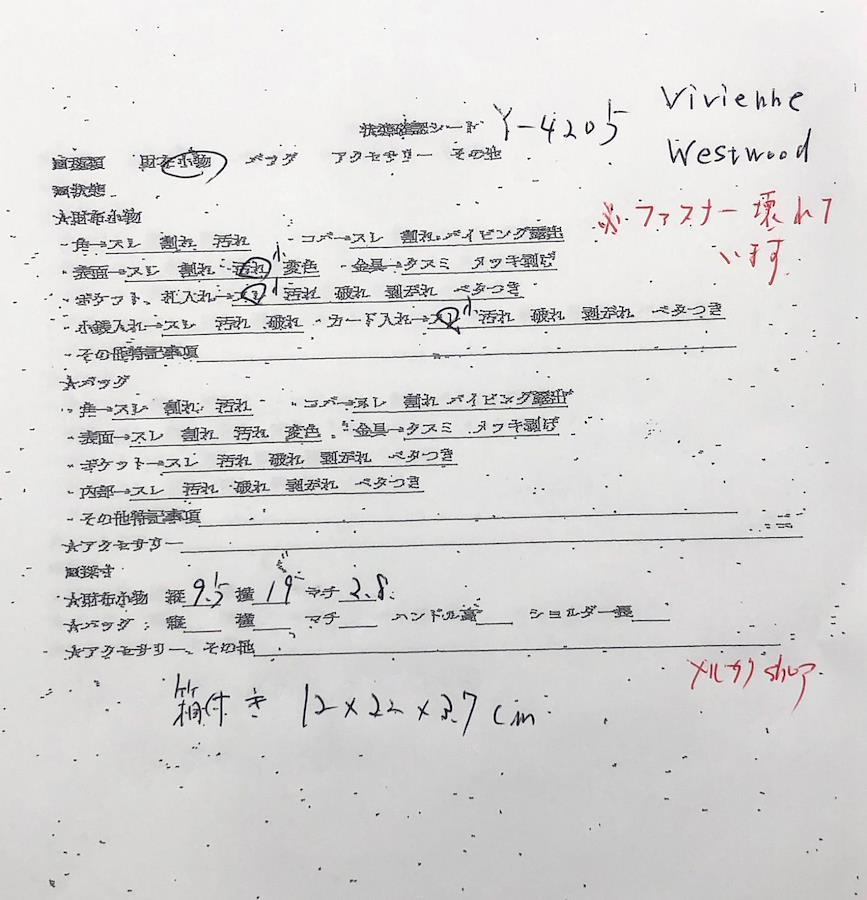 状態確認シート Y-4205 Vivienne
Westwood
■種類 財布小物 バッグ アクセサリー その他
■状態
★財布小物 ※ファスナー壊れて
います
・角→スレ 割れ 汚れ ・コバ→スレ 割れ パイピング露出
・表面→スレ 割れ 汚れ 小 変色 ・金具→クスミ メッキ剥げ
・ポケット、札入れ→スレ 小 汚れ 破れ 剥がれ ベタつき
・小銭入れ→スレ 汚れ 破れ ・カード入れ→スレ 小 汚れ 破れ 剥がれ ベタつき
・その他特記事項
★バッグ
・角→スレ 割れ 汚れ ・コバ→スレ 割れ パイピング露出
・表面→スレ 割れ 汚れ 変色 ・金具→クスミ メッキ剥げ
・ポケット→スレ 汚れ 破れ 剥がれ ベタつき
・内部→スレ 汚れ 破れ 剥がれ ベタつき
・その他特記事項
★アクセサリー
■採寸
★財布小物 縦 9.5 横 19 マチ 2.8
★バッグ:縦 横 マチ ハンドル高 ショルダー長
★アクセサリー、その他
メルカリshop
箱付き 12×22×3.7cm